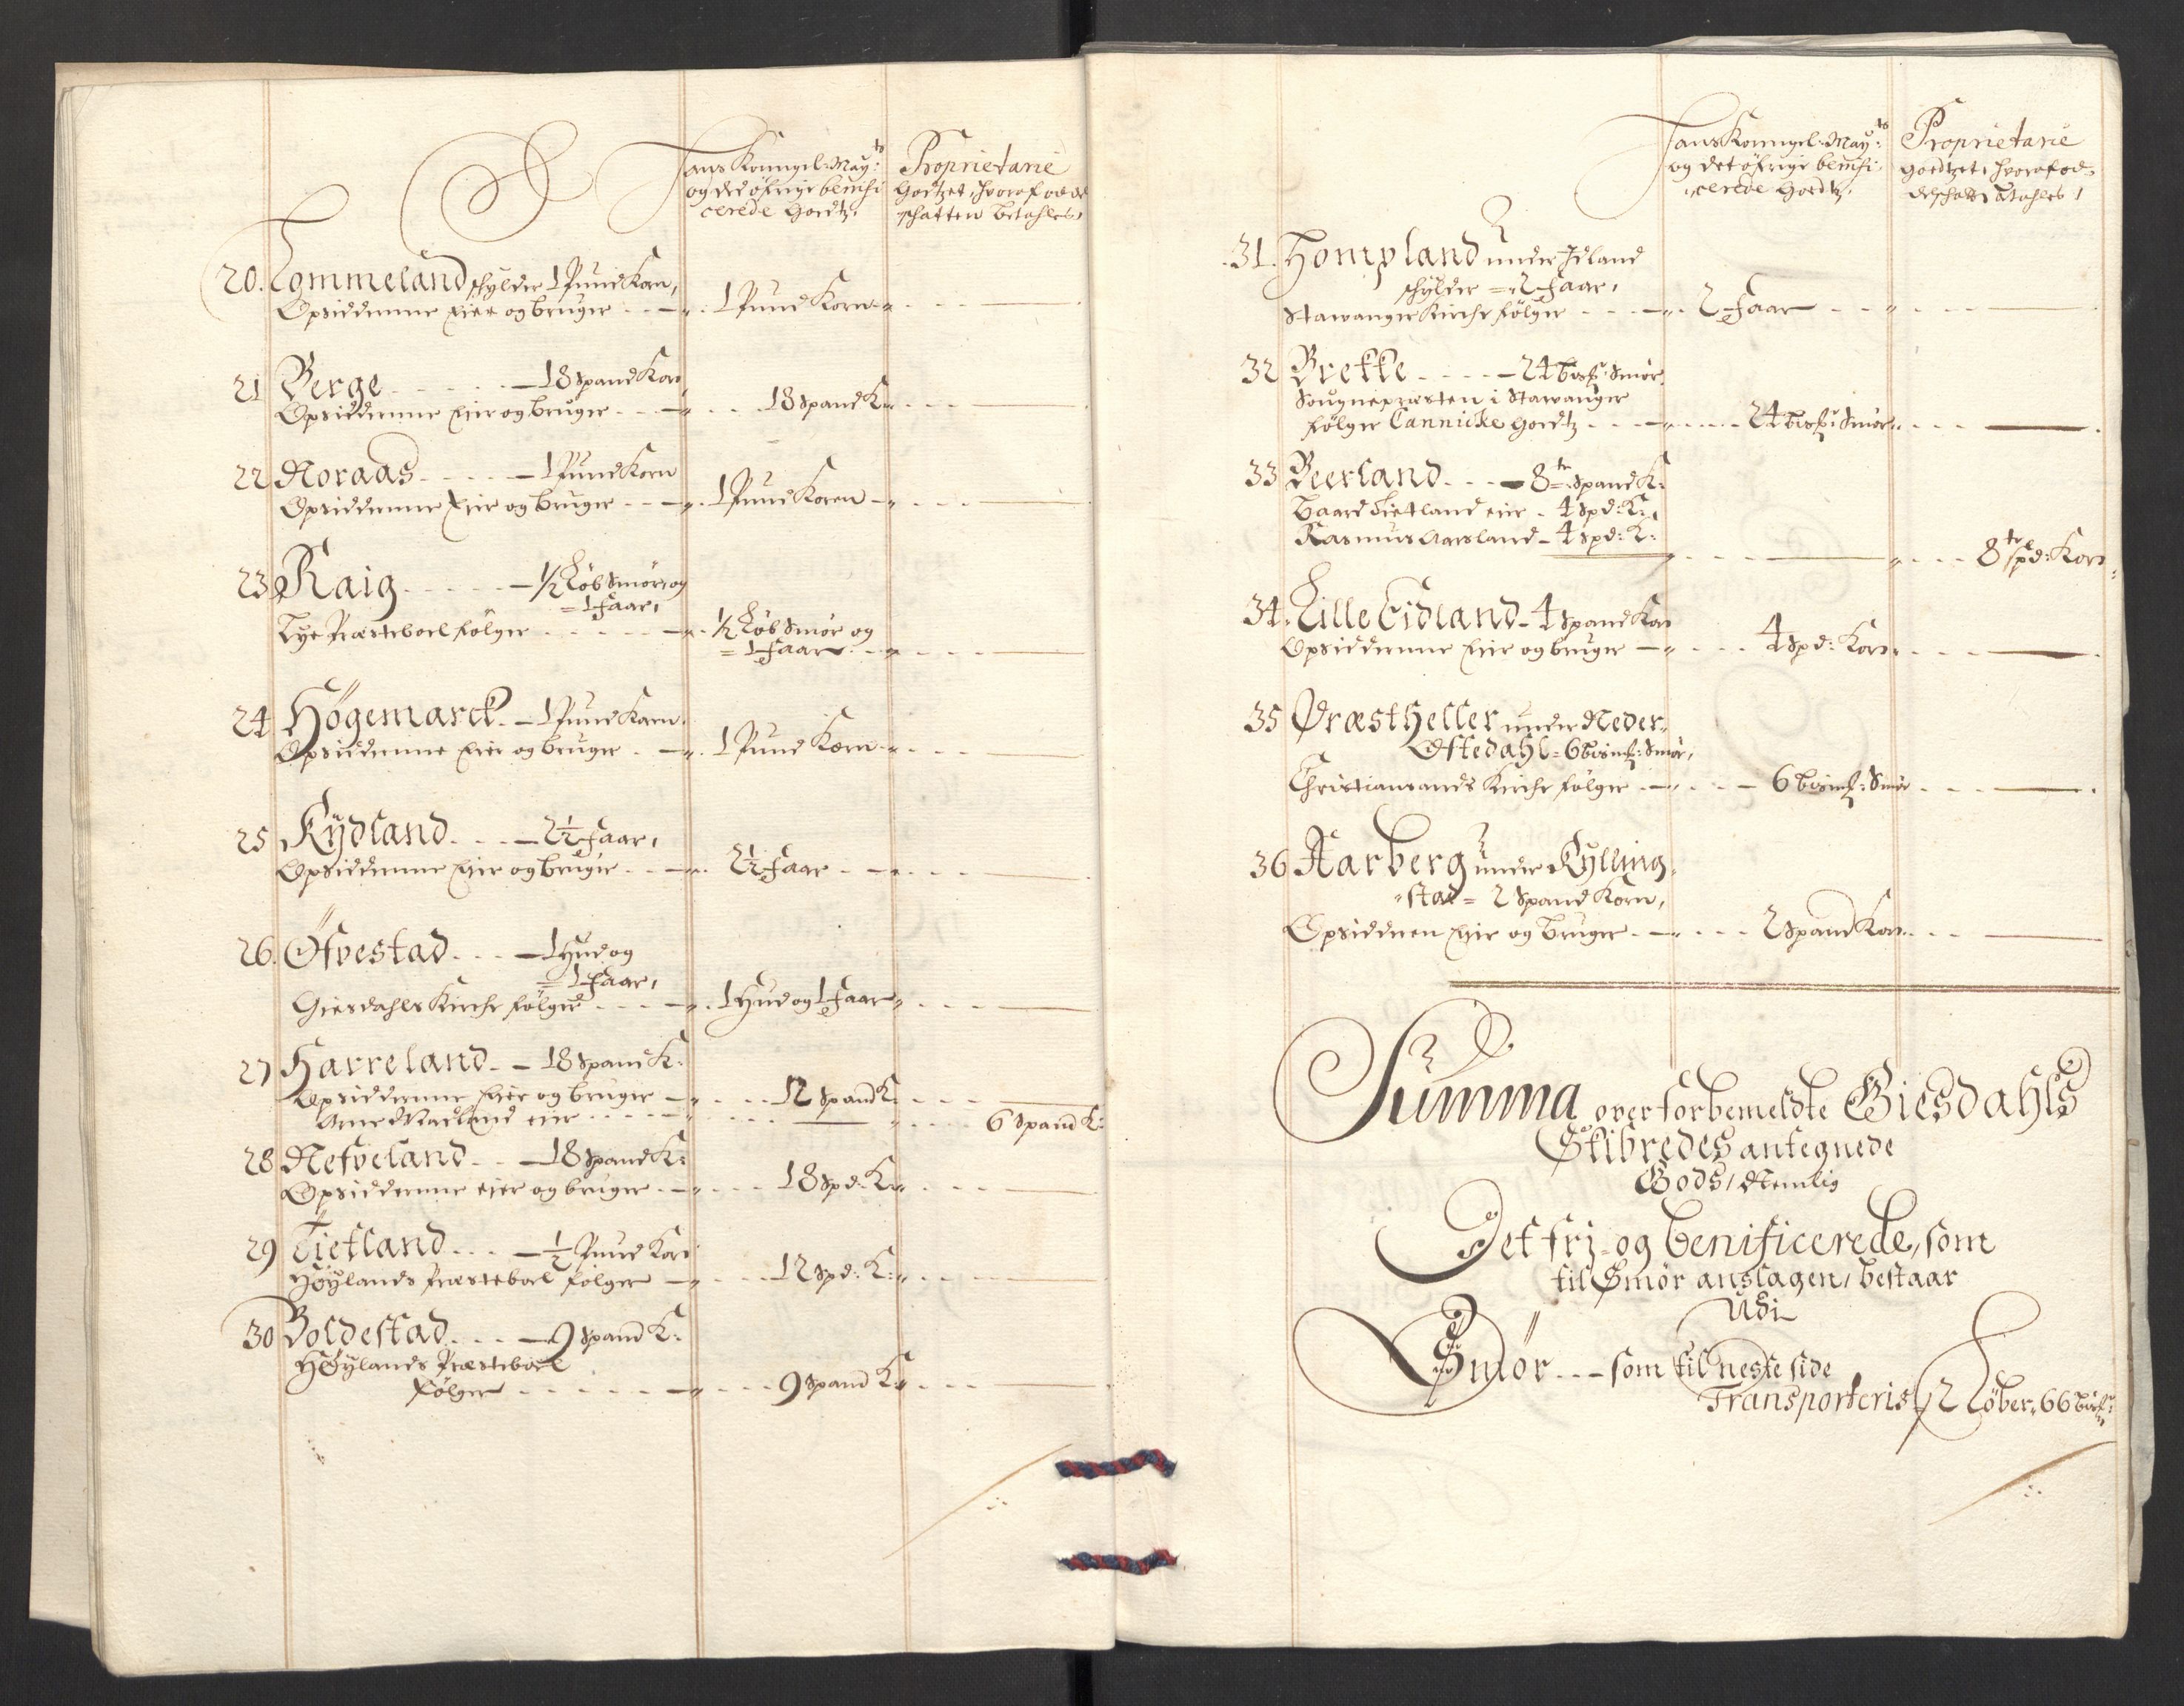 Hans Kongel: Mayts:
og det öfrige benifi
cerede Goedtz.
Proprietarie
Goedtzet, hvoraf odel
schatten betahles,
20. Tommeland schylder 1 Pund Korn,
Opsidderne Eier og bruger - - - 1 Pund Korn
21 Berge - - - 18 Spand Korn
Opsidderne Eier og bruger - - - 18 Spand K:
22 Noraas - - - 1 Pund Korn
Opsidderne Eier og bruger - - - 1 Pund Koren
23 Raig - - - 1/2 Løb Smør, og
= 1 Faar,
Tye Præsteboel følger - - - 1/2 Løb Smør og
= 1 Faar
24 Högemarck - 1 Pund Korn.
Opsidderne Eier og bruger - - - 1 Pund Korn
25 Kydland - - - 2 1/2 Faar,
Opsidderne Eier og bruger - - - 2 1/2 Faar
26. Öfvestad - - - 1 Hud og
= 1 Faar,
Giesdahls Kirche følger - - - 1 Hud og 1 Faar
27 Harreland - - 18 Spand K:
Opsidderne Eier og bruger - - - 12 Spand K:
Arne Madland eier - - - 6 Spand K:
28 Nefveland - - - 18 Spand K:
Opsidderne eier og bruger - - - 18 Spd: K:
29 Tietland - - - 1/2 Pund Korn
Høylands Præsteboel følger - - - 12 Spd: K:
30 Boldestad - - - 9 Spand K:
Høylands Præsteboel
følger - - - 9 Spand K:
Hans Kongel: Mayts:
og det öfrige benifi
cerede Goedtz.
Proprietarie
Goedtzet, hvoraf od-
delschatt: betahles,
31. Hompland under Idland
schylder = 2 Faar,
Stawanger Kirche følger - - - 2 Faar
32 Brekke - - - 24 bismr: Smör
Sougnepræsten i Stawanger
følger Cannicke Goedtz - - - 24 bismr: Smör
33 Beerland - - - 8te Spand K:
Baard Tietland eier - 4 Spd: K:
Rasmus Aarsland - 4 Spd: K:
8te Spd: Korn
34. Lille Eidland - 4 Spand Korn
Opsidderne Eier og bruger - - - 4 Spd: Korn
35 Øræstheller under Neder-
Oftedahl = 6 bismr: Smör,
Christiansands Kirche følger - - - 6 bismr: Smör
36 Aarberg under Kylling-
stad = 2 Spand Korn,
Opsidderen Eier og bruger - - - 2 Spand Korn
Summa over forbemeldte Giesdahls
Skibredes antegnede
Gods, Nemlig
Det frj- og benificerede, som
til Smør anslagen, bestaar
Udi
Smör - - - som til neste side
Transporteris 2 Löber, 66 bismr: